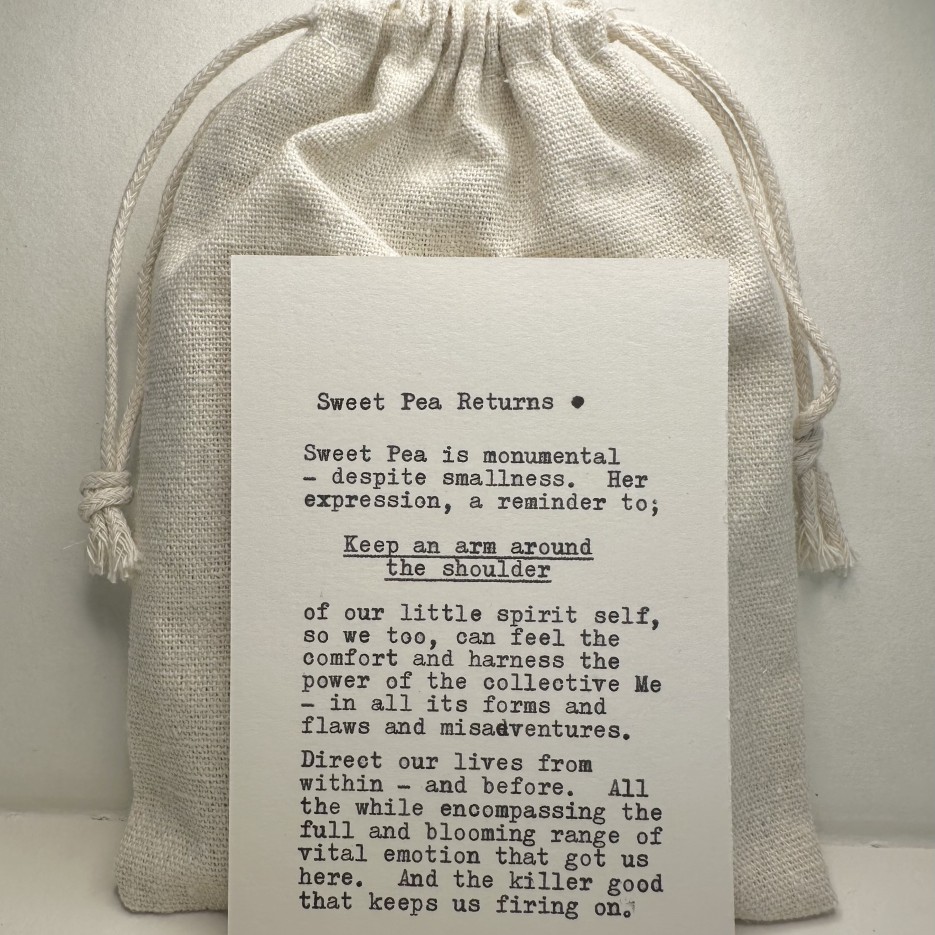 Sweet Pea Returns •
Sweet Pea is monumental
– despite smallness.  Her
expression, a reminder to;
Keep an arm around
the shoulder
of our little spirit self,
so we too, can feel the
comfort and harness the
power of the collective Me
– in all its forms and
flaws and misadventures.
Direct our lives from
within – and before.  All
the while encompassing the
full and blooming range of
vital emotion that got us
here.  And the killer good
that keeps us firing on.